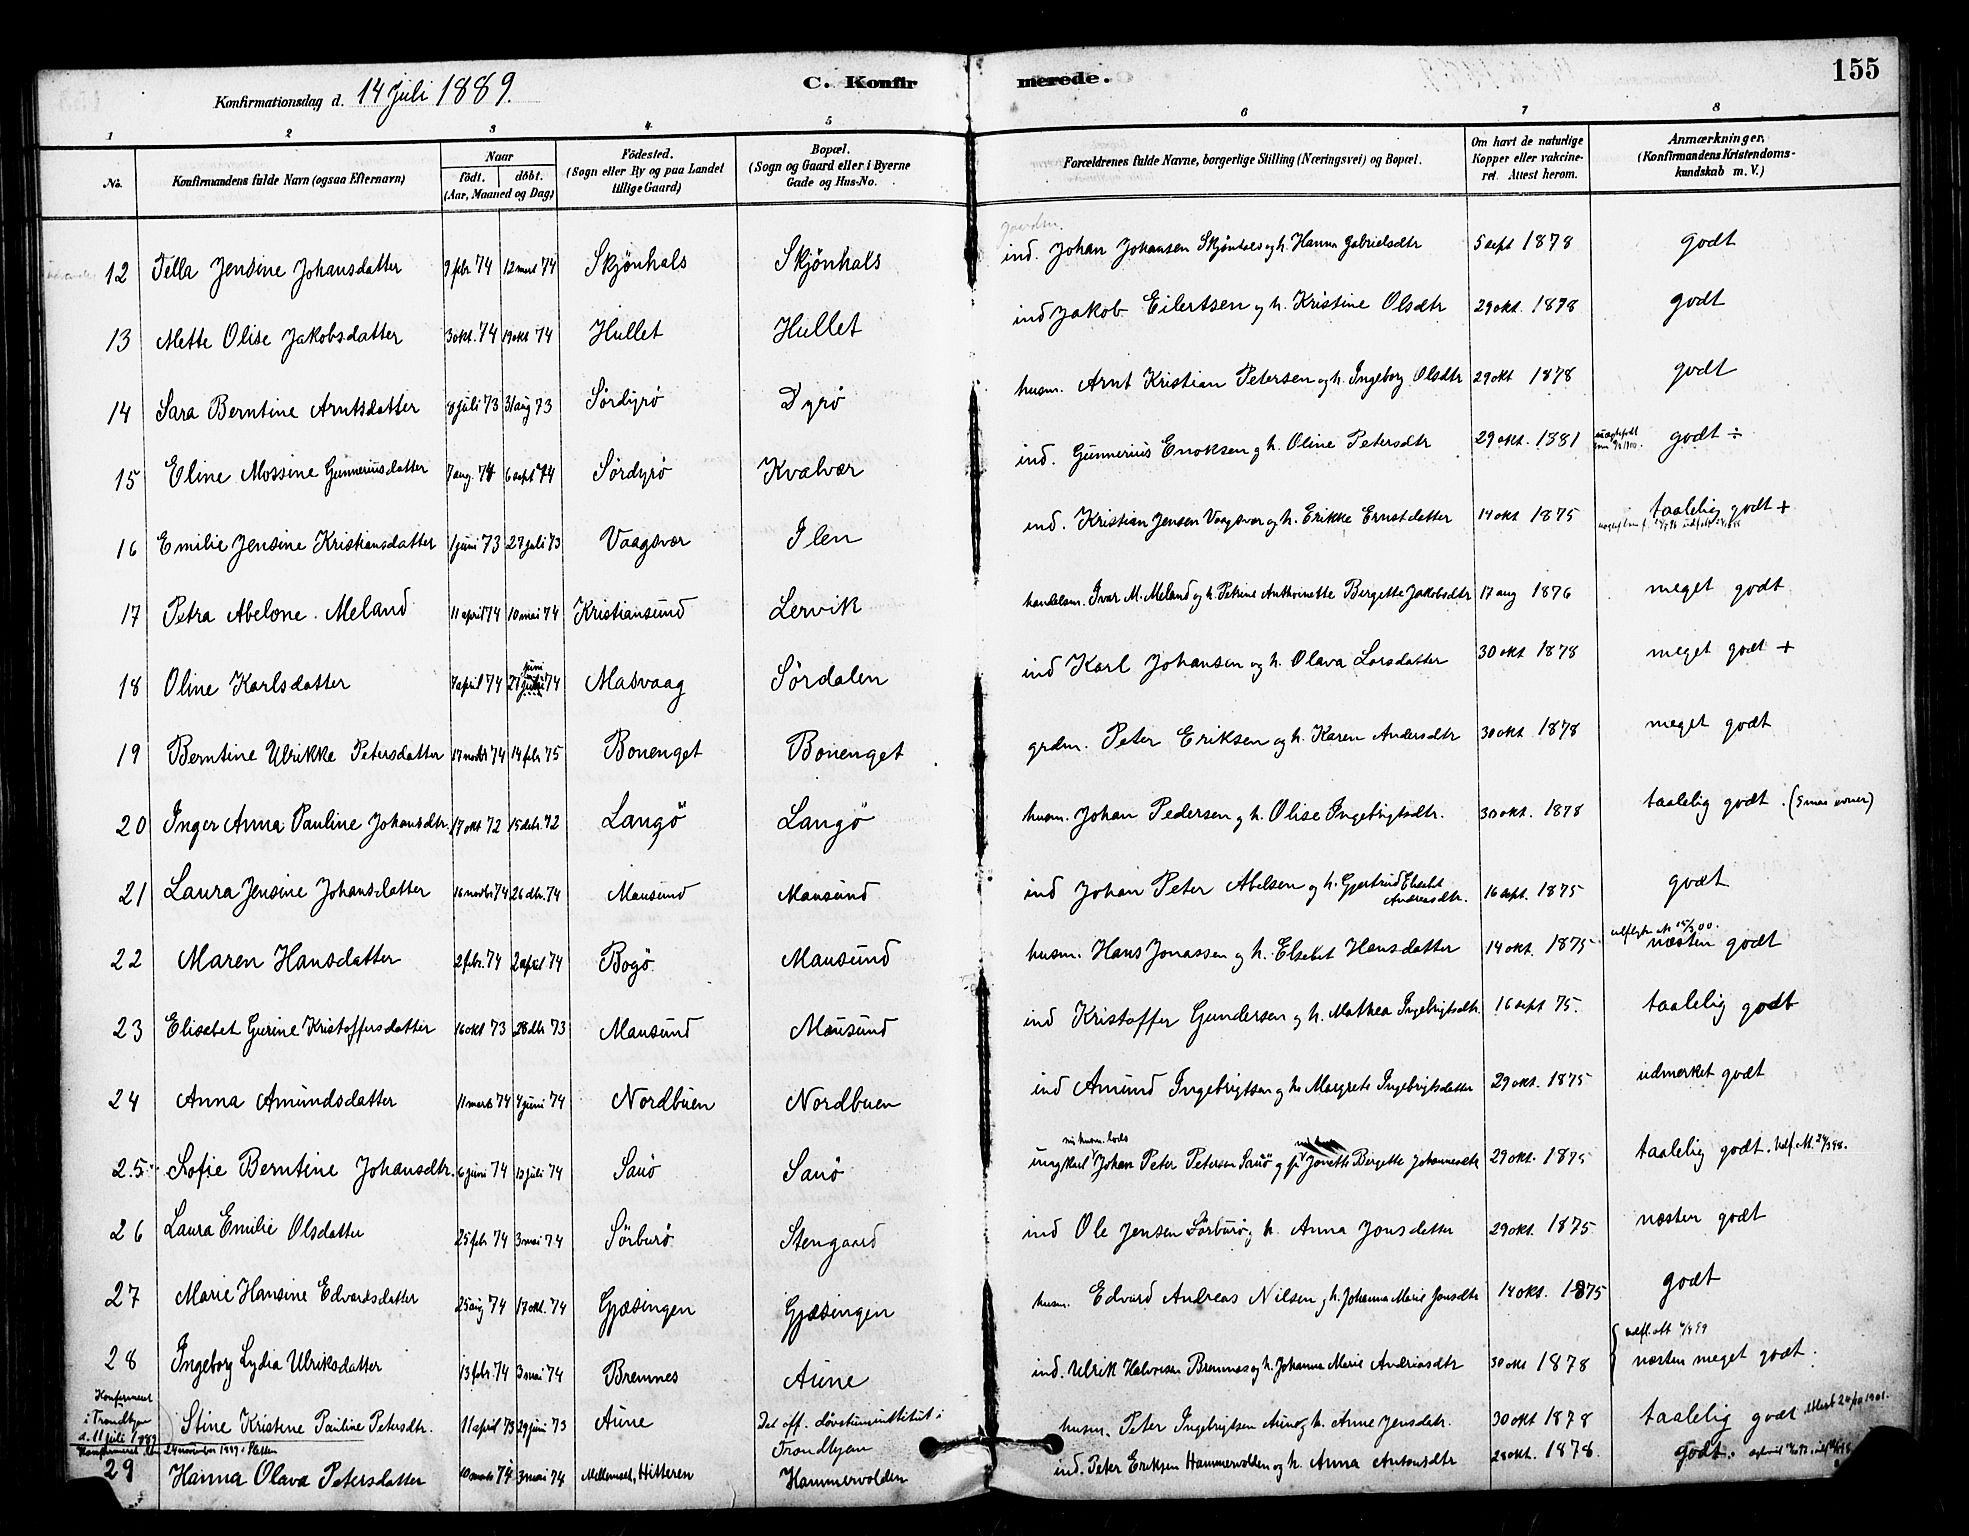 Konfirmationsdag d. 14 Juli 1889.
C. Konfirmerede.
155
1 2 3 4 5 6 7 8
No.
Konfirmandens fulde Navn (ogsaa Efternavn)
Naar
födt. döbt.
(Aar, Maaned og Dag)
Födested.
(Sogn eller By og paa Landet
tillige Gaard)
Bopæl.
(Sogn og Gaard eller i Byerne
Gade og Hus-No.
Forældrenes fulde Navne, borgerlige Stilling (Næringsvei) og Bopæl.
Om havt de naturlige
Kopper eller vakcine-
ret. Attest herom.
Anmærkninger,
(Konfirmandens Kristendoms-
kundskab m. V.)
12 Tella Jensine Johansdatter 9 febr '74 12 mars '74 Skjönhals Skjönhals ind. Johan Johansen Skjönhals og h. Hanna Gabrielsdtr 5 sept 1878 godt
13 Mette Olise Jakobsdatter 3 okt. '74 19 okt '74 Hullet Hullet ind Jakob Eilertsen og h. Kristine Olsdtr 29 okt. 1878 godt
14 Sara Berntine Arntsdatter 8 juli 73 31 aug 73 Sördyrö Dyrö husm. Arnt Kristian Petersen og h. Ingeborg Olsdtr 29 okt 1878 godt
15 Eline Mossine Gunneriusdatter 7 aug. 74 6 sept 74 Sördyrö Kvalvær ind. Gunnerius Enoksen g h. Oline Petersdtr 29 okt. 1881 godt ÷
16 Emilie Jensine Kristiansdatter 1 juni 73 27 juli 73 Vaagsvær Ilen ind. Kristian Jensen Vaagsvær og h. Erikke Ernstdatter 14 okt 1875 taalelig godt +
17 Petra Abelone. Meland 11 april 74 10 mai 74 Kristiansund Lervik handelsm. Ivar M. Meland og h. Petrine Anthoinette Bergette Jakobsdtr 17 aug 1876 meget godt
18 Oline Karlsdatter 7 april 74 21 juni 74 Masvaag Sördalen ind Karl Johansen og h. Olava Larsdatter 30 okt 1878 meget godt +
19 Berntine Ulrikke Petersdatter 17 novbr 74 14 febr 75 Bonenget Bonenget grdm. Peter Eriksen og h. Karen Andersdtr 30 okt 1878 meget godt
20 Inger Anna Pauline Johansdtr. 17 okt 72 15 debr. 72 Langö Langö husm. Johan Pedersen g h. Olise Ingebrigtsdtr. 30 okt. 1878 taalelig godt. (smaa evner)
21 Laura Jensine Johansdatter 16 novbr 74 26 dbr. 74 Mausund Mausund ind Johan Peter Abelsen g h. Gjertrud Elisebet Andreasdtr. 16 sept. 1875 godt
22 Maren Hansdatter 2 febr. 74 2 april 74 Bogö Mausund husm. Hans Jonassen g h. Elsebet Hansdatter 14 okt. 1875 næsten godt
23 Elisebet Gurine Kristoffersdatter 16 okt 73 28 dbr 73 Mausund Mausund ind Kristoffer Gundersen g h. Mathea Ingebrigtsdtr. 16 sept 75. taalelig godt
24 Anna Amundsdatter 11 marts 74 4 juni 74 Nordbuen Nordbuen ind Amund Ingebrigtsen g h. Margrete Ingebrigtsdatter 29 okt. 1875 udmerket godt
25. Sofie Berntine Johansdtr. 6 juni 74 12 juli 74 Sauö Sauö ungkarl Johan Peter Petersen Sauö g p Jonette Bergette Johannesdtr 29 okt. 1875 taalelig godt.
26 Laura Emilie Olsdatter 25 febr 74 3 mai 74 Sörburö Stengaard ind Ole Jensen Sörburö g h. Anna Jonsdatter 29 okt. 1875 næsten godt
27 Marie Hansine Edvardsdatter 25 aug 74 17 okt. 74 Gjæsingen Gjæsingen husm. Edvard Andreas Nilsen g h. Johanna Marie Jonsdtr 14 okt. 1875 godt
28 Ingeborg Lydia Ulriksdatter 13 febr. 74 3 mai 74 Bremnes Aune ind. Ulrik Halvorsen Bremnes og h. Johanna Marie Andreasdtr 30 okt 1878 næsten meget godt.
Konfirmeret
i Trondhjem
d. 11 juli 1889
Stine Kristene Pauline Petersdtr. 11 april 73 29 juni 73 Aune Det off. dövstuminstitut i Trondhjem husm. Peter Ingebrigtsen Aune g h. Anne Jensdatr. 30 okt 1878 taalelig godt
Konfirmeret den 24 november 1889 i Sletten
29 Hanna Olava Petersdatter 10 marts 74 3 mai 74 Mellemsel, Hitteren Hammervolden ind. Peter Eriksen Hammervolden og h. Anna Antonsdtr 28 okt. 1878. godt.